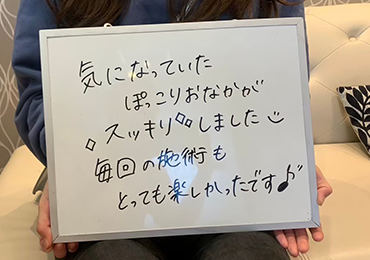 気になっていた
ぽっこりおなかが
スッキリしました
毎回の施術も
とっても楽しかったです♪